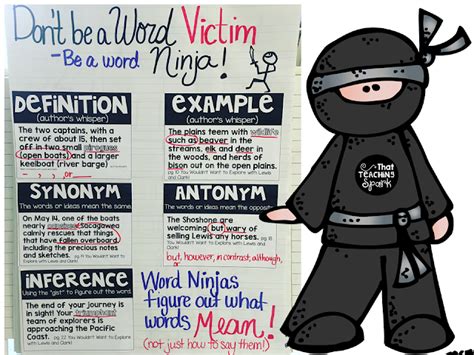 Don't be a Word Victim
-Be a word Ninja!
DEFINITION
(author's whisper)
The two captains, with a
crew of about 15, then set
off in two small pirogues
(open boats) and a larger
keelboat (river barge)
EXAMPLE
(author's whisper)
The plains teem with wildlife
such as beaver in the
streams, elk and deer in
the woods, and herds of
bison out on the open plains.
pg 10 You Wouldn't Want to Explore with Lewis
and Clark!
- , or
SYNONYM
The words or ideas mean the same.
On May 14, one of the boats
nearly capsizes. Sacagawea
calmly rescues that things
that have fallen overboard,
including the precious notes
and sketches.
You Wouldn't Want to Explore with Lewis and
Clark!
ANTONYM
The words or ideas mean the opposite.
The Shoshone are
welcoming, but wary of
selling Lewis any horses.
You Wouldn't Want to Explore with Lewis and
Clark!
but, however, in contrast, although,
or
INFERENCE
Using the "gist" to figure out the word
The end of your journey is
in sight! Your triumphant
team of explorers is
approaching the Pacific
Coast.
pg 22 You Wouldn't Want to Explore with Lewis
and Clark!
Word Ninjas
figure out what
words Mean!
(not just how to say them!)
That
TEACHING
Spark